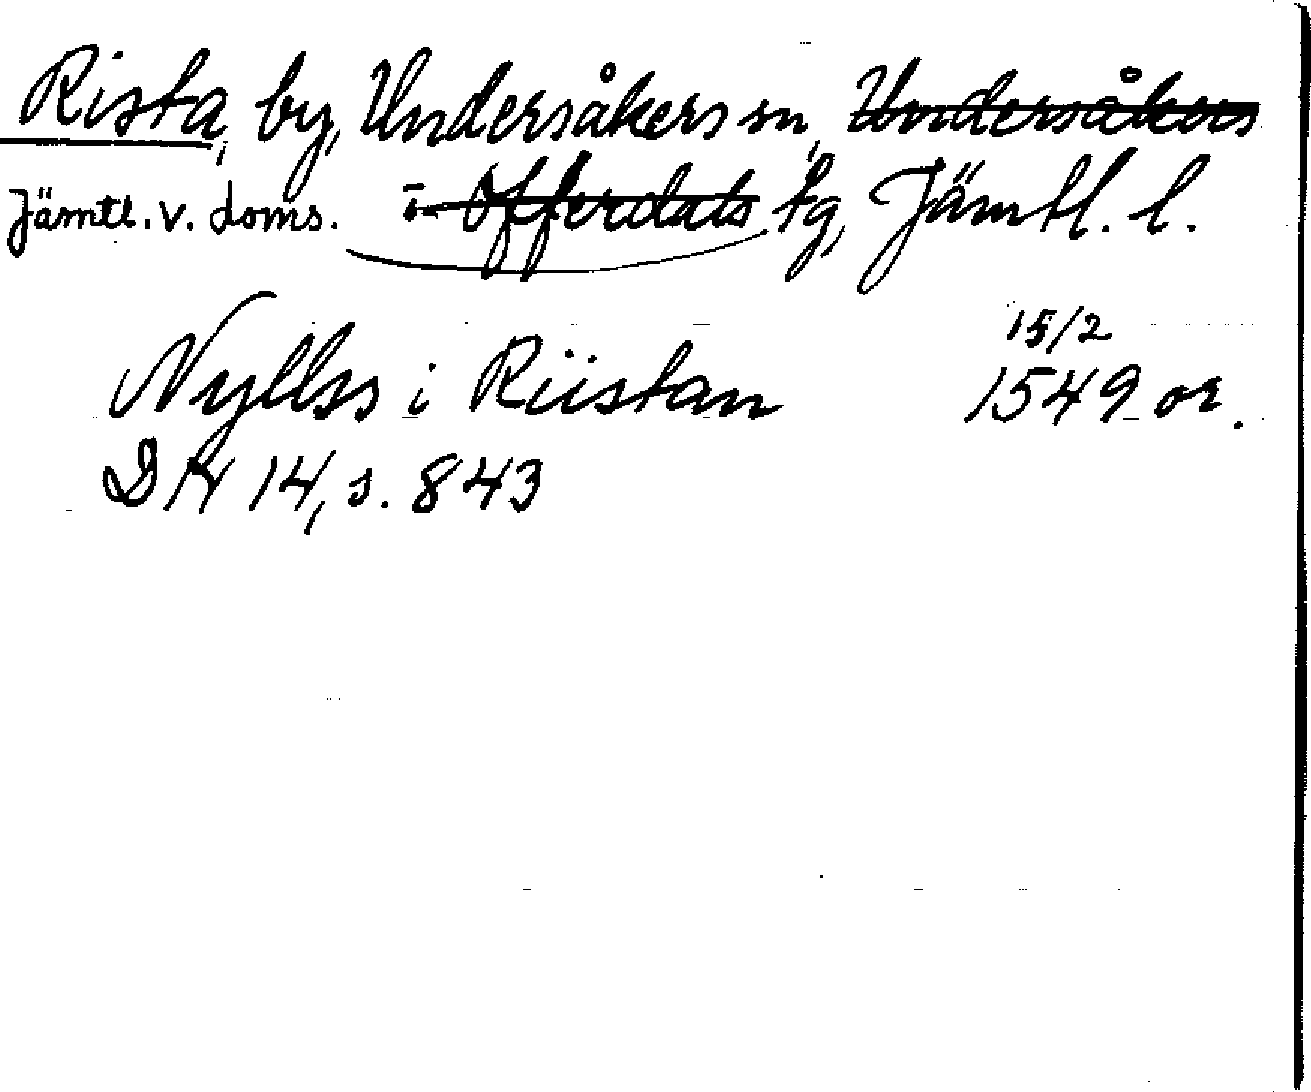 Rista, by, Undersåkers sn, Undersåkers
Jämtl. v. doms. o. Offerdals tg, Jämtl. l.
15/2
Nyllss i Riistan 1549 or.
DN 14, s. 843